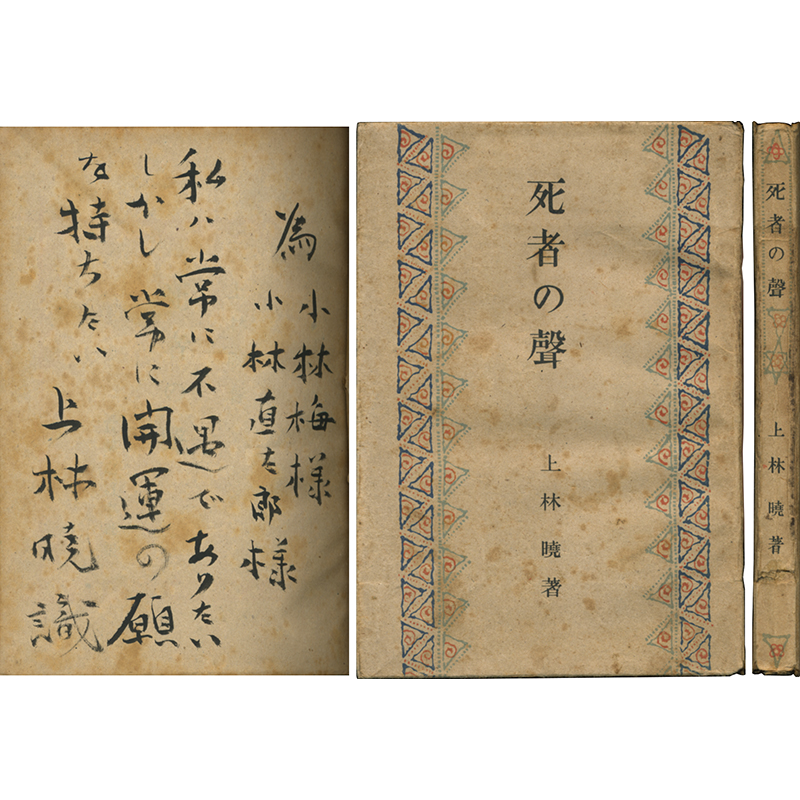 為
小林梅様
小林直太郎様
私ハ常に不遇でありたい
しかし常に開運の願
を持ちたい
上林曉識
死者の聲
上林曉著
死者の聲
上林曉著